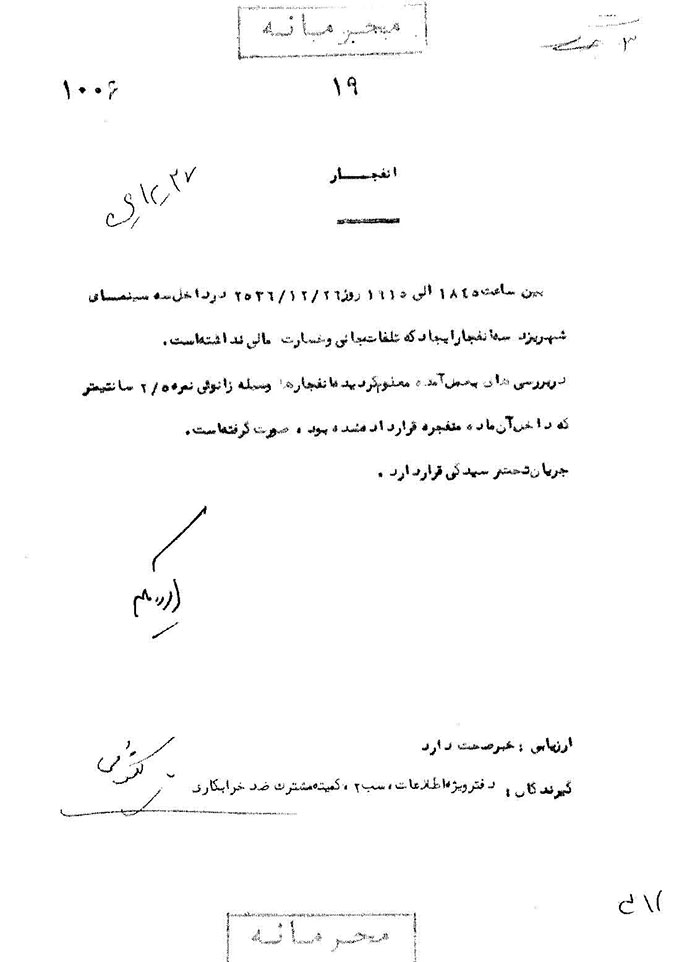 محرمانه
۳
۱۹
۱۰۰۶
انفجـــار
بین ساعت ۱۸۴۵ الی ۱۹۱۵ روز ۲۵۳۶/۱۲/۲۶ در داخل سه سینمای
شهر یزد سه انفجار ایجاد که تلفات جانی و خسارت مالی نداشته است.
در بررسی های بعمل آمده معلوم گردیده انفجارها وسیله زانوئی نمره ۲/۵ سانتیمتر
که داخل آن ماده منفجره قرار داده شده بود، صورت گرفته است.
جریان تحت رسیدگی قرار دارد.
ارزیابی: خبر صحت دارد
گیرندگان: دفتر ویژه اطلاعات، سب۲، کمیته مشترک ضد خرابکاری
محرمانه